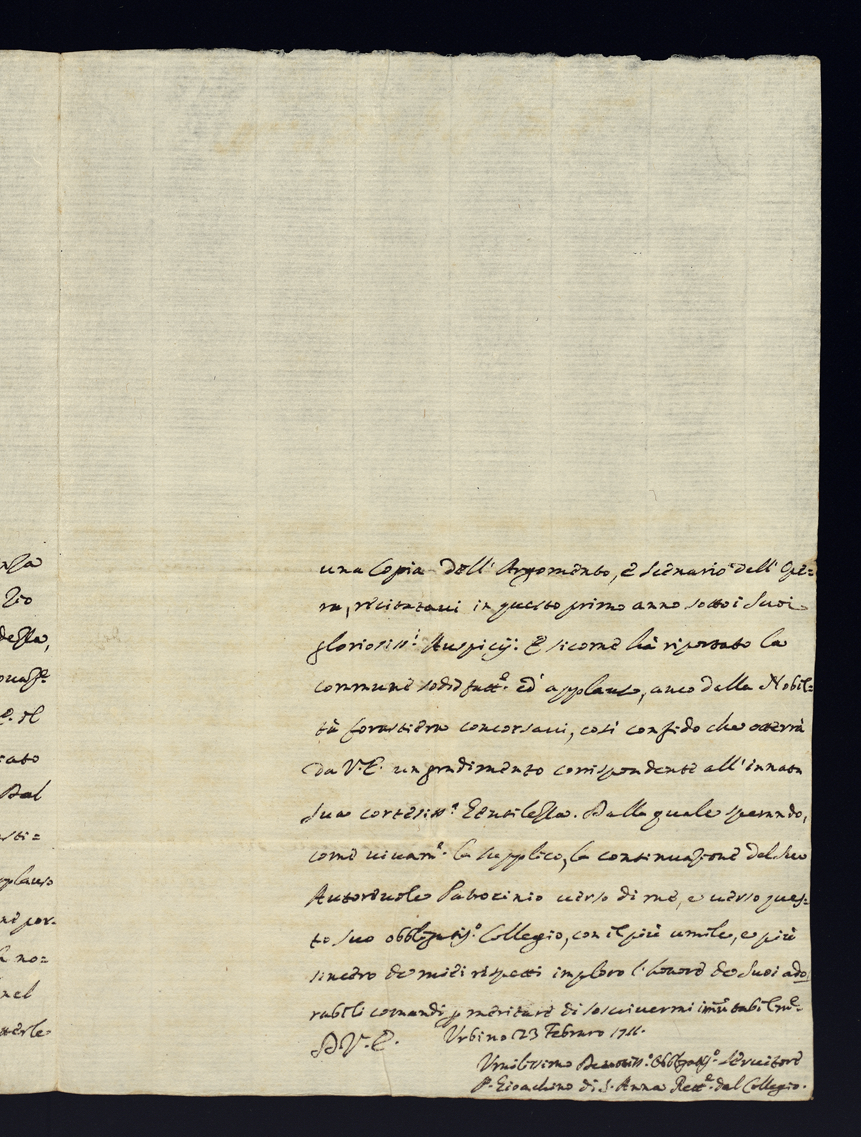 una Copia dell' Argomento, e Scenario dell' Ope=
ra, recitatavi in questo primo anno sotto i Suoi
gloriosiss.i Auspicij: E sicome hà riportato la
commune sodisfatt.e ed' applauso, anco della Nobil=
tà forastiera concorsavi, così confido che otterrà
da V.E. un gradimento corrispondente all' innata
sua cortesiss.a Gentilezza. Dalla quale sperando,
come vivam.e la supplico, la continuazione del suo
Autorevole Patrocinio verso di me, e verso ques-
to suo obbligatis.o Collegio, con il più umile, e più
sincero de miei rispetti imploro l'honore de Suoi ado
rabili comandi p meritare di soscrivermi immutabilm.e
D V. E. Urbino 23 Febraro 1711.
Umilissimo Devotiss.o Obbligatis.o Servitore
P. Gioachino di S. Anna Rett.e del Collegio.
nza
Zio
dessa,
E. Il
cato
Dal
sti=
applauso
me por-
no=
nel
tterle